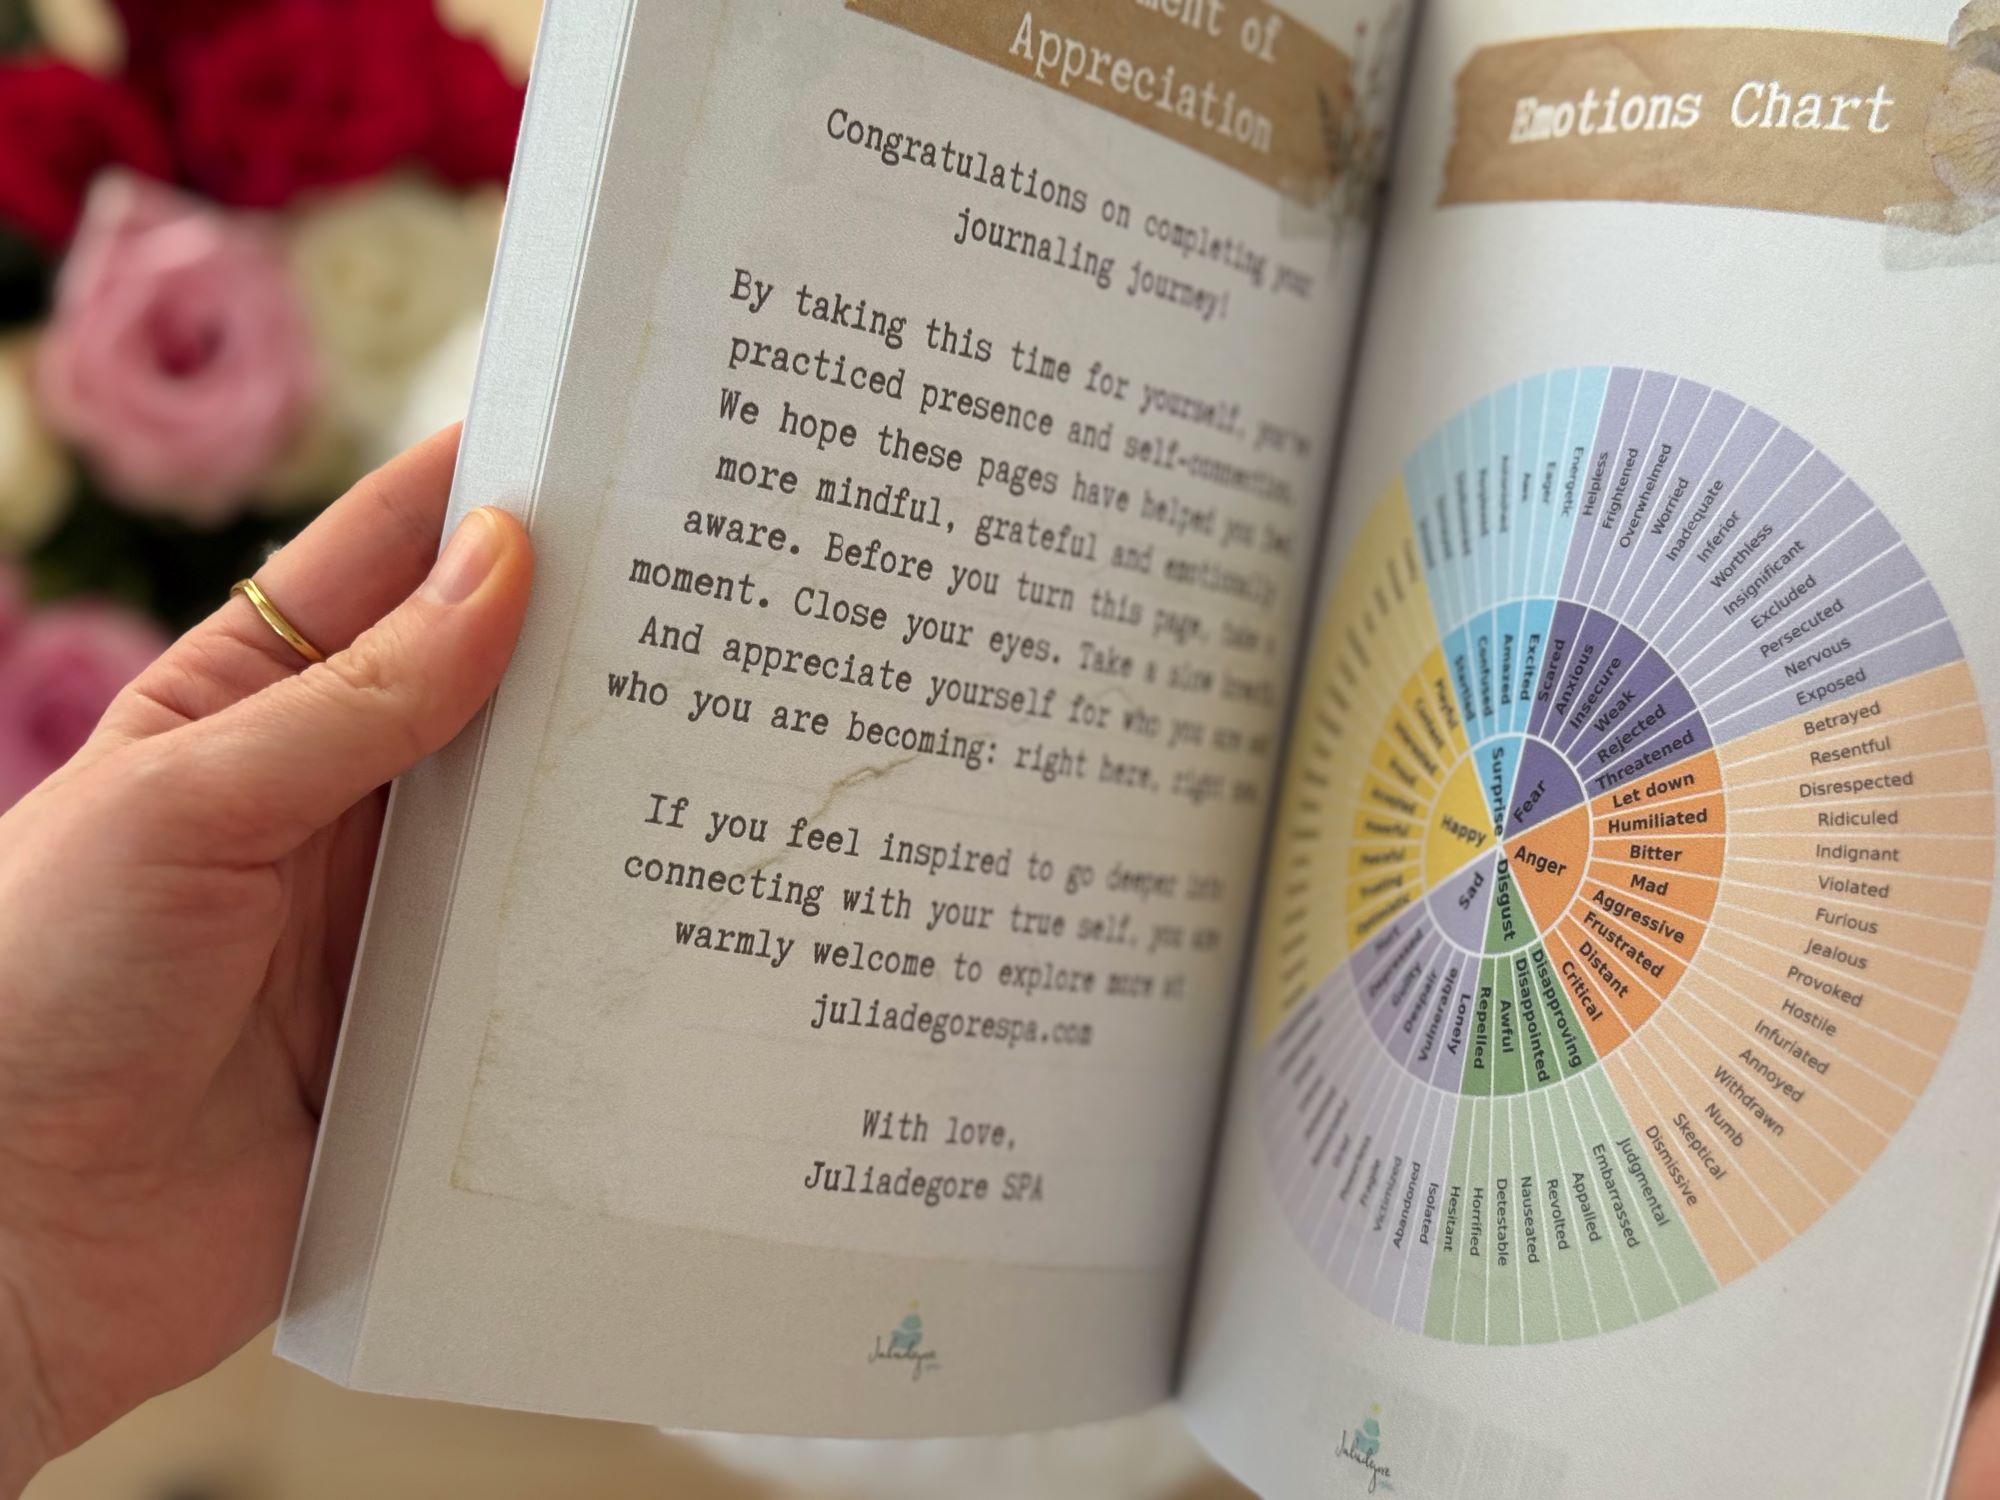 of
Appreciation
Congratulations on completing your
journaling journey!
By taking this time for yourself, you've
practiced presence and self-connection.
We hope these pages have helped you feel
more mindful, grateful and emotionally
aware. Before you turn this page, take a
moment. Close your eyes. Take a slow breath.
And appreciate yourself for who you are and
who you are becoming: right here, right now.
If you feel inspired to go deeper into
connecting with your true self, you are
warmly welcome to explore more at
juliadegorespa.com
With love,
Juliadegore SPA
Juliadegore
Emotions Chart
Surprise
Fear
Anger
Disgust
Sad
Happy
Startled
Confused
Amazed
Excited
Scared
Anxious
Insecure
Weak
Rejected
Threatened
Let down
Humiliated
Bitter
Mad
Aggressive
Frustrated
Distant
Critical
Disapproving
Disappointed
Awful
Repelled
Lonely
Vulnerable
Despair
Guilty
Depressed
Hurt
Playful
Eager
Energetic
Helpless
Frightened
Overwhelmed
Worried
Inadequate
Inferior
Worthless
Insignificant
Excluded
Persecuted
Nervous
Exposed
Betrayed
Resentful
Disrespected
Ridiculed
Indignant
Violated
Furious
Jealous
Provoked
Hostile
Infuriated
Annoyed
Withdrawn
Numb
Skeptical
Dismissive
Judgmental
Embarrassed
Appalled
Revolted
Nauseated
Detestable
Horrified
Hesitant
Isolated
Abandoned
Victimized
Fragile
Juliadegore